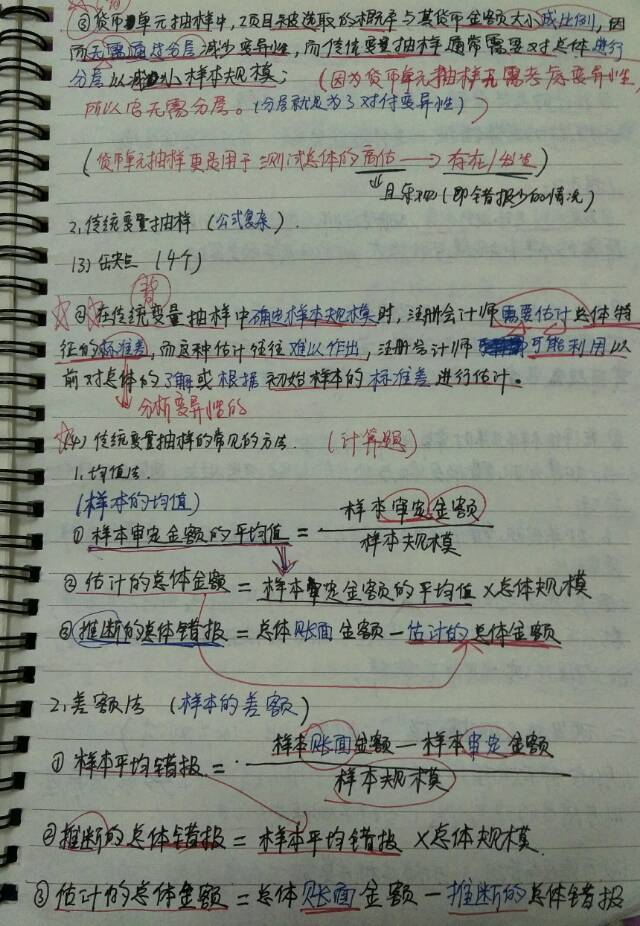 ③货币单元抽样中，项目被选取的概率与其货币金额大小成比例，因
而无需通过分层减少变异性，而传统变量抽样通常需要对总体进行
分层以减小样本规模；（因为货币单元抽样无需考虑变异性，
所以它无需分层。（分层就是为了对付变异性））
（货币单元抽样更适用于测试总体的高估→存在/发生）
且乐观（即错报少的情况）
2.传统变量抽样（公式复杂）.
(3)缺点（4个）
背
②在传统变量抽样中确定样本规模时，注册会计师需要估计总体特
征的标准差，而这种估计往往难以作出，注册会计师可能利用以
前对总体的了解或根据初始样本的标准差进行估计。
分析变异性的
(4)传统变量抽样的常见的方法.（计算题）
1.均值法.
（样本的均值）
①样本审定金额的平均值＝样本审定金额/样本规模
②估计的总体金额＝样本审定金额的平均值×总体规模
③推断的总体错报＝总体账面金额－估计的总体金额
2.差额法（样本的差额）
①样本平均错报＝样本账面金额－样本审定金额/样本规模
②推断的总体错报＝样本平均错报×总体规模.
③估计的总体金额＝总体账面金额－推断的总体错报